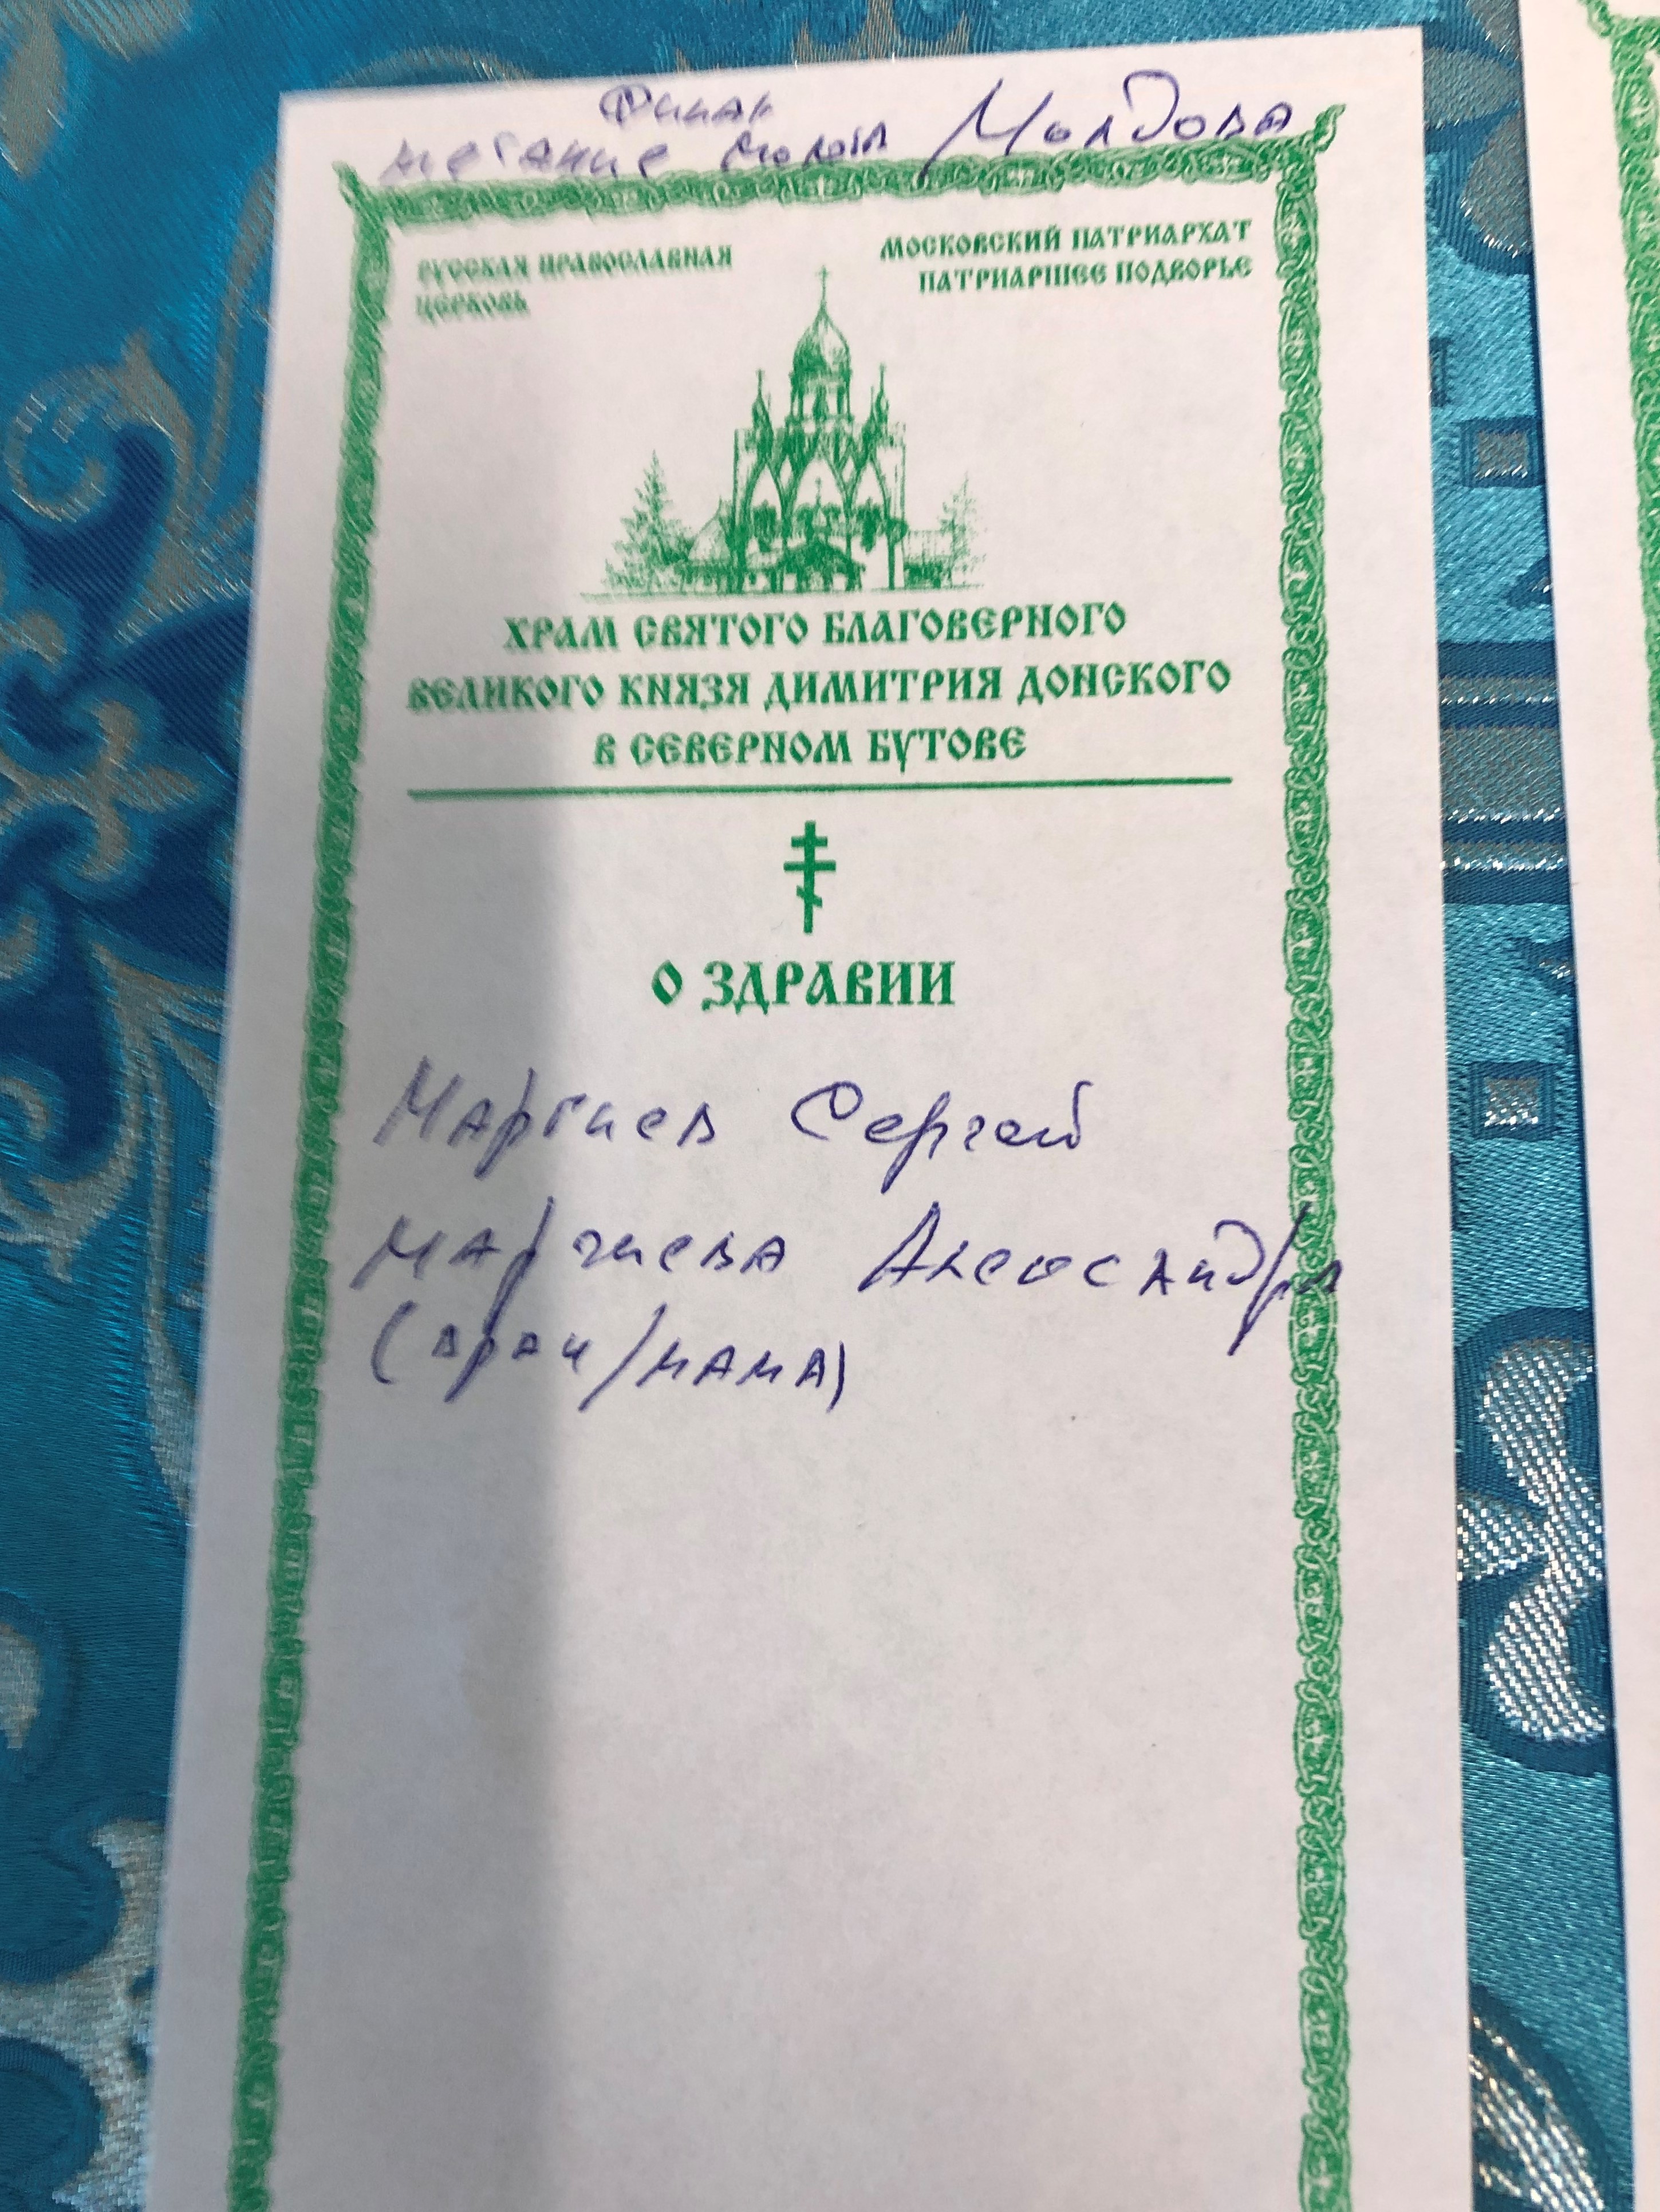 Финал
метание молота Молдова
РУССКАЯ ПРАВОСЛАВНАЯ
ЦЕРКОВЬ
МОСКОВСКИЙ ПАТРИАРХАТ
ПАТРИАРШЕЕ ПОДВОРЬЕ
ХРАМ СВЯТОГО БЛАГОВЕРНОГО
ВЕЛИКОГО КНЯЗЯ ДИМИТРИЯ ДОНСКОГО
В СЕВЕРНОМ БУТОВЕ
О ЗДРАВИИ
Маргиев Сергей
Маргиева Александра
(врач/мама)